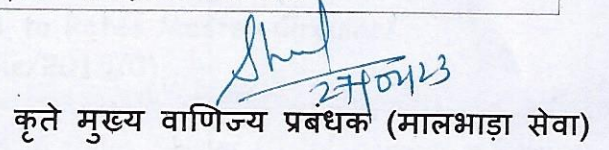 27/04/23
कृते मुख्य वाणिज्य प्रबंधक (मालभाड़ा सेवा)